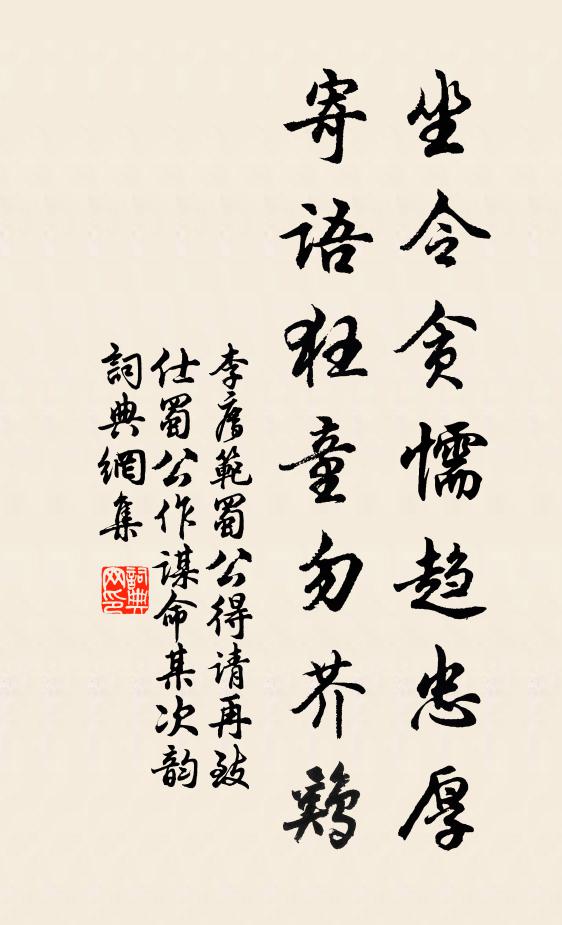 坐令贪懦趋忠厚
寄語狂童勿芥鷄
李廌範蜀公得請再致
仕蜀公作謀命某次韵
詞典網集
詞典网印